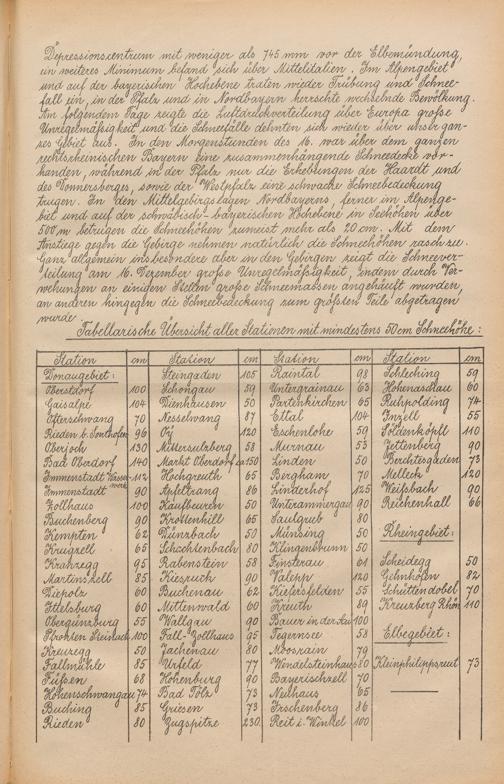 Depressionscentrum mit weniger als 745 mm vor der Elbemündung,
ein weiteres Minimum befand sich über Mittelitalien. Im Alpengebiet
und auf der bayerischen Hochebene traten wieder Trübung und Schnee-
fall ein, in der Pfalz und in Nordbayern herrschte wechselnde Bewölkung.
Am folgendem Tage zeigte die Luftdruckverteilung über Europa große
Unregelmäßigkeit und die Schneefälle dehnten sich wieder über unser gan-
zes Gebiet aus. In den Morgenstunden des 16. war über dem ganzen
rechtsrheinischen Bayern eine zusammenhängende Schneedecke vor-
handen, während in der Pfalz nur die Erhebungen der Haardt und
des Donnersberges, sowie der Westpfalz eine schwache Schneebedeckung
trugen. In den Mittelgebirgslagen Nordbayerns, ferner im Alpenge-
biet und auf der schwäbisch-bayerischen Hochebene in Seehöhen über
500 m betrugen die Schneehöhen zumeist mehr als 20 cm. Mit dem
Anstiege gegen die Gebirge nehmen natürlich die Schneehöhen rasch zu.
Ganz allgemein insbesondere aber in den Gebirgen zeigt die Schneever-
teilung am 16. Dezember große Unregelmäßigkeit, indem durch Ver-
wehungen an einigen Stellen große Schneemassen angehäuft wurden,
an anderen hingegen die Schneebedeckung zum größten Teile abgetragen
wurde.
Tabellarische Übersicht aller Stationen mit mindestens 50 cm Schneehöhe:
Station cm Station cm Station cm Station cm
Donaugebiet: Steingaden 105 Raintal 98 Schleching 59
Oberstdorf 100 Schongau 59 Untergrainau 63 Hohenaschau 60
Gaisalpe 104 Dienhausen 50 Partenkirchen 65 Ruhpolding 74
Ofterschwang 70 Nesselwang 87 Ettal 104 Inzell 55
Rieden b. Sonthofen 96 Oy 120 Eschenlohe 59 Söldenköpfl 110
Oberjoch 130 Mittersulzberg 58 Murnau 53 Vettenberg 90
Bad Oberdorf 140 Markt Oberdorf ca 150 Linden 50 Berchtesgaden 73
Immenstadt Wasserwerk 112 Hochgreuth 65 Bergham 70 Melleck 120
Immenstadt 90 Apfeltrang 86 Linderhof 125 Weißbach 90
Zollhaus 100 Kaufbeuren 50 Unterammergau 90 Reichenhall 66
Buchenberg 90 Krottenhill 65 Saulgrub 80
Kempten 62 Dünzbach 50 Münsing 50 Rheingebiet:
Krugzell 65 Schochlenbach 80 Klingenbrunn 50
Krahzegg 95 Rabenstein 58 Finsterau 61 Scheidegg 50
Martinszell 85 Kiesruch 90 Valepp 120 Gehnhofen 82
Diepolz 60 Buchenau 62 Kiefersfelden 55 Schüttendobel 70
Ittelsburg 60 Mittenwald 60 Kreuth 89 Kreuzberg Rhön 110
Obergünzburg 55 Wallgau 90 Bauer in der Au 100
Pfronten Steinach 100 Fall-Zollhaus 95 Tegernsee 58 Elbegebiet:
Kreuzegg 50 Jachenau 80 Moosrain 79
Fallmühle 85 Urfeld 77 Wendelsteinhaus 80 Kleinphilippsreut 73
Füßen 68 Hohenburg 90 Bayerischzell 70
Hohenschwangau 74 Bad Tölz 73 Neuhaus 65
Buching 85 Griesen 73 Irschenberg 86
Rieden 80 Zugspitze 230 Reit i. Winkel 100